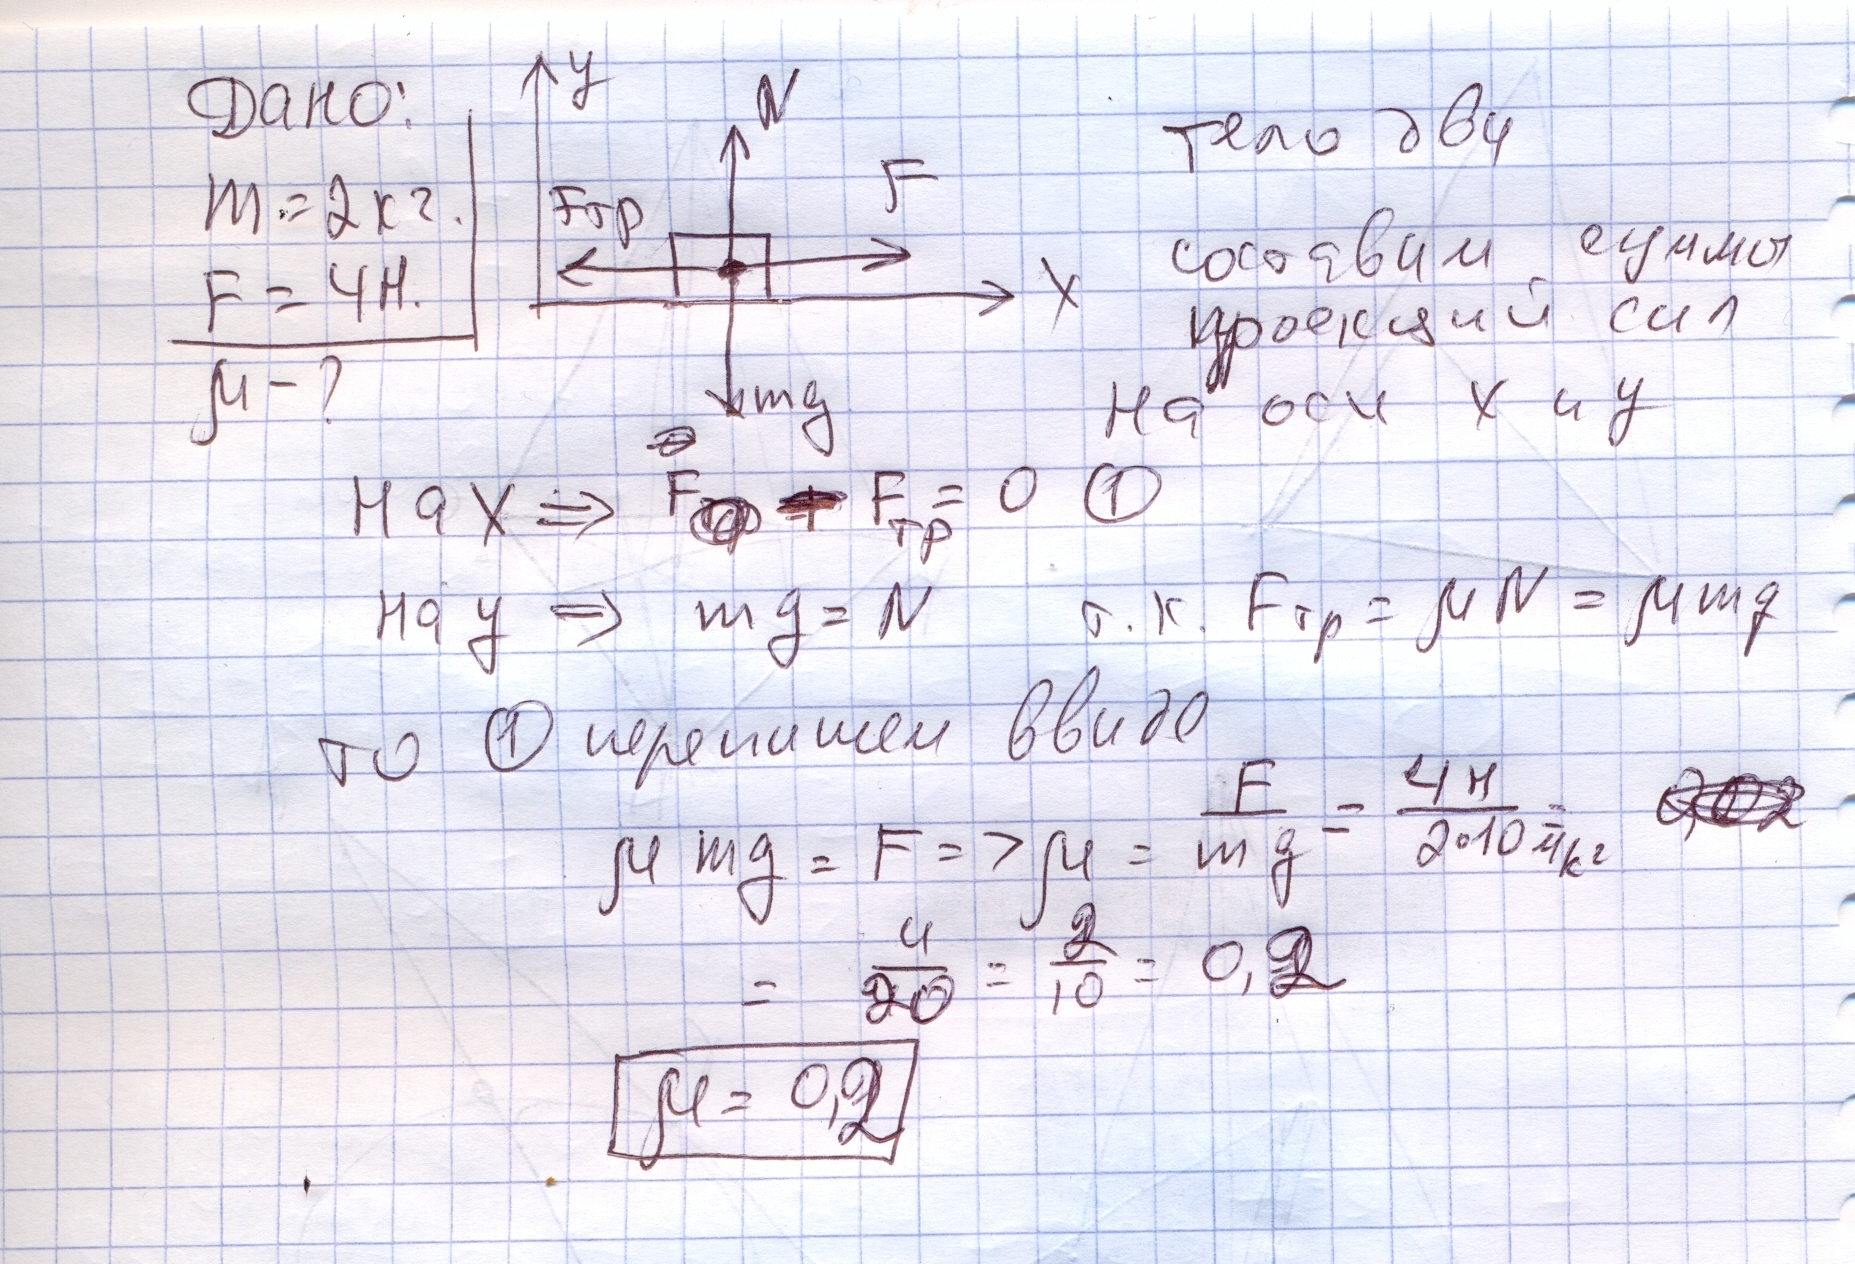 Дано:
m = 2кг.
F = 4Н.
μ - ?
y
N
Fтр
F
X
mg
тело дви
составим суммы
проекций сил
на оси X и y
на X ⇒ F - Fтр = 0 ①
на y ⇒ mg = N т.к. Fтр = μN = μmg
то ① перепишем ввиде
μmg = F => μ = F/mg = 4Н/2·10Н/кг =
= 4/20 = 2/10 = 0,2
μ = 0,2